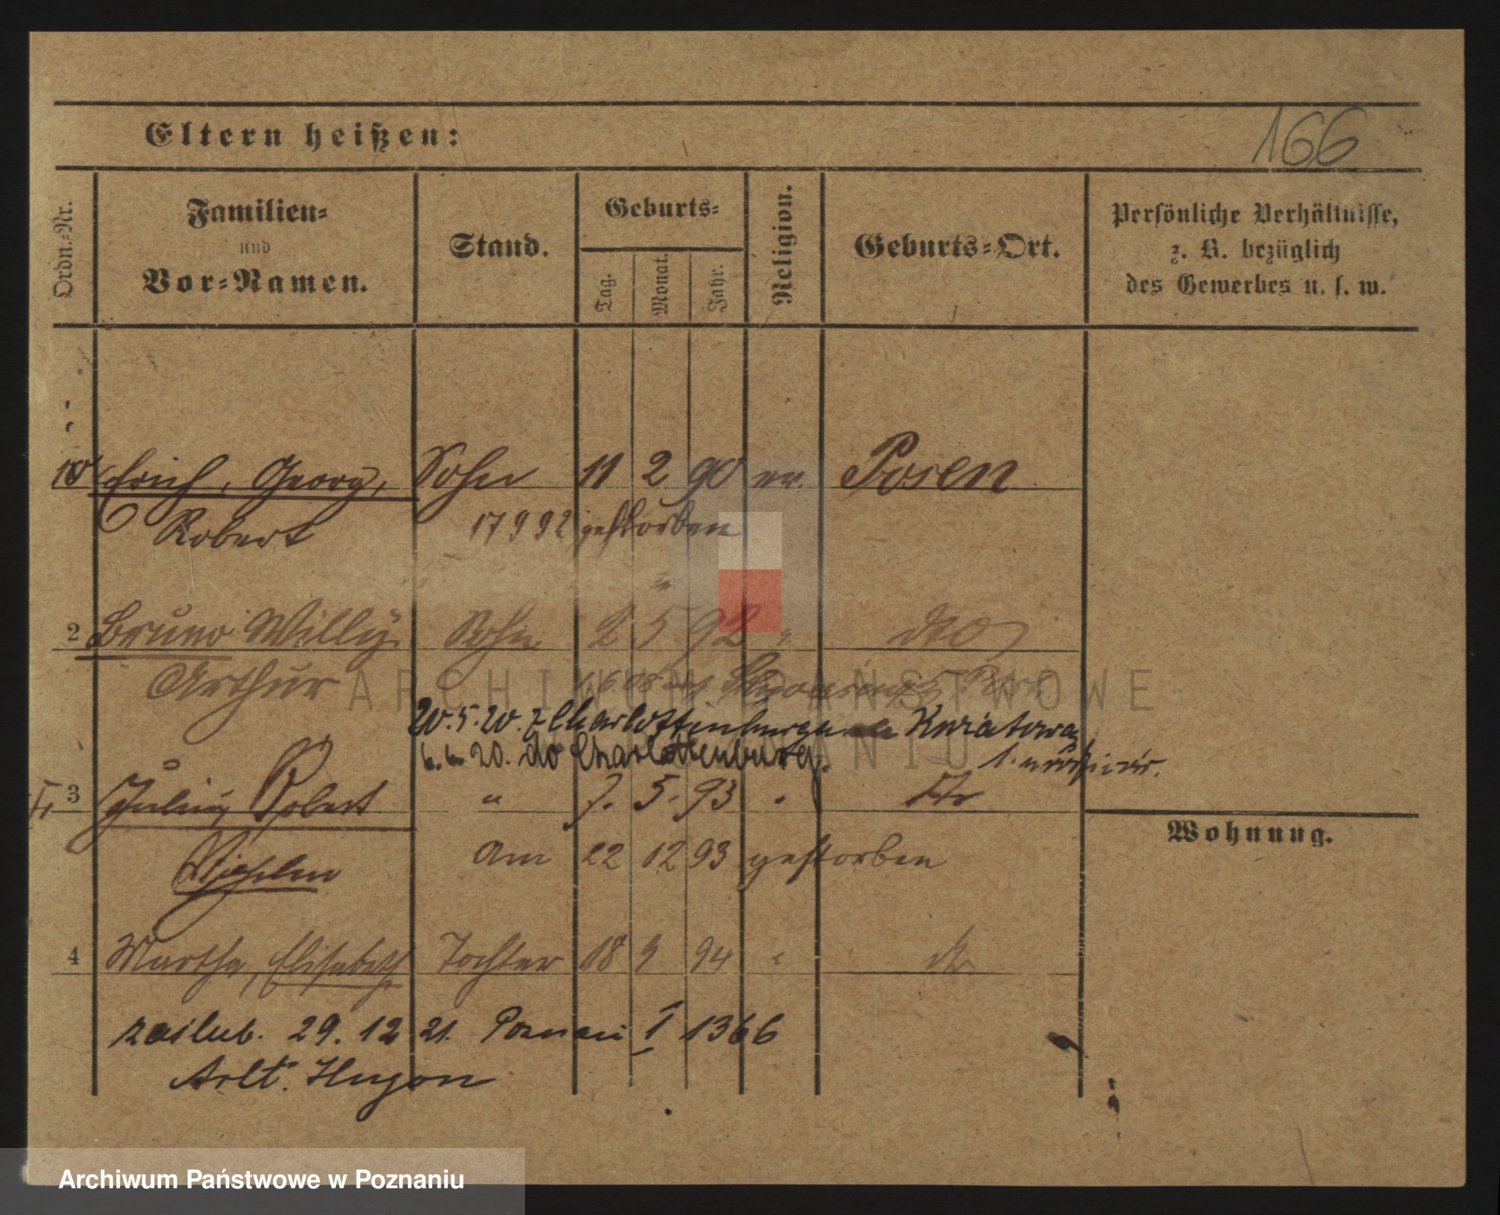 Eltern heißen:
166
Ordn.-Nr.
Familien-
und
Vor-Namen.
Stand.
Geburts-
Tag.
Monat.
Jahr.
Religion.
Geburts-Ort.
Persönliche Verhältnisse,
z. B. bezüglich
des Gewerbes u. s. w.
Erich, Georg, Sohn 11 2 90 ev. Posen
Robert 17 9 92 gestorben
2 Bruno Willy Sohn 2 5 92 " dto
Arthur
ARCHIWUM PAŃSTWOWE
W POZNANIU
20.5.20. z Charlottenburga Kwiatowa
6.6.20. do Charlottenburg.
3 Julius Robert " 7. 5. 93 " dto
Wilhelm am 22 12 93 gestorben
Wohnung.
4 Martha, Elisabeth Tochter 18 9 94 " dto
zaślub. 29. 12 21. Poznań I 1366
Arlt. Hugon
Archiwum Państwowe w Poznaniu